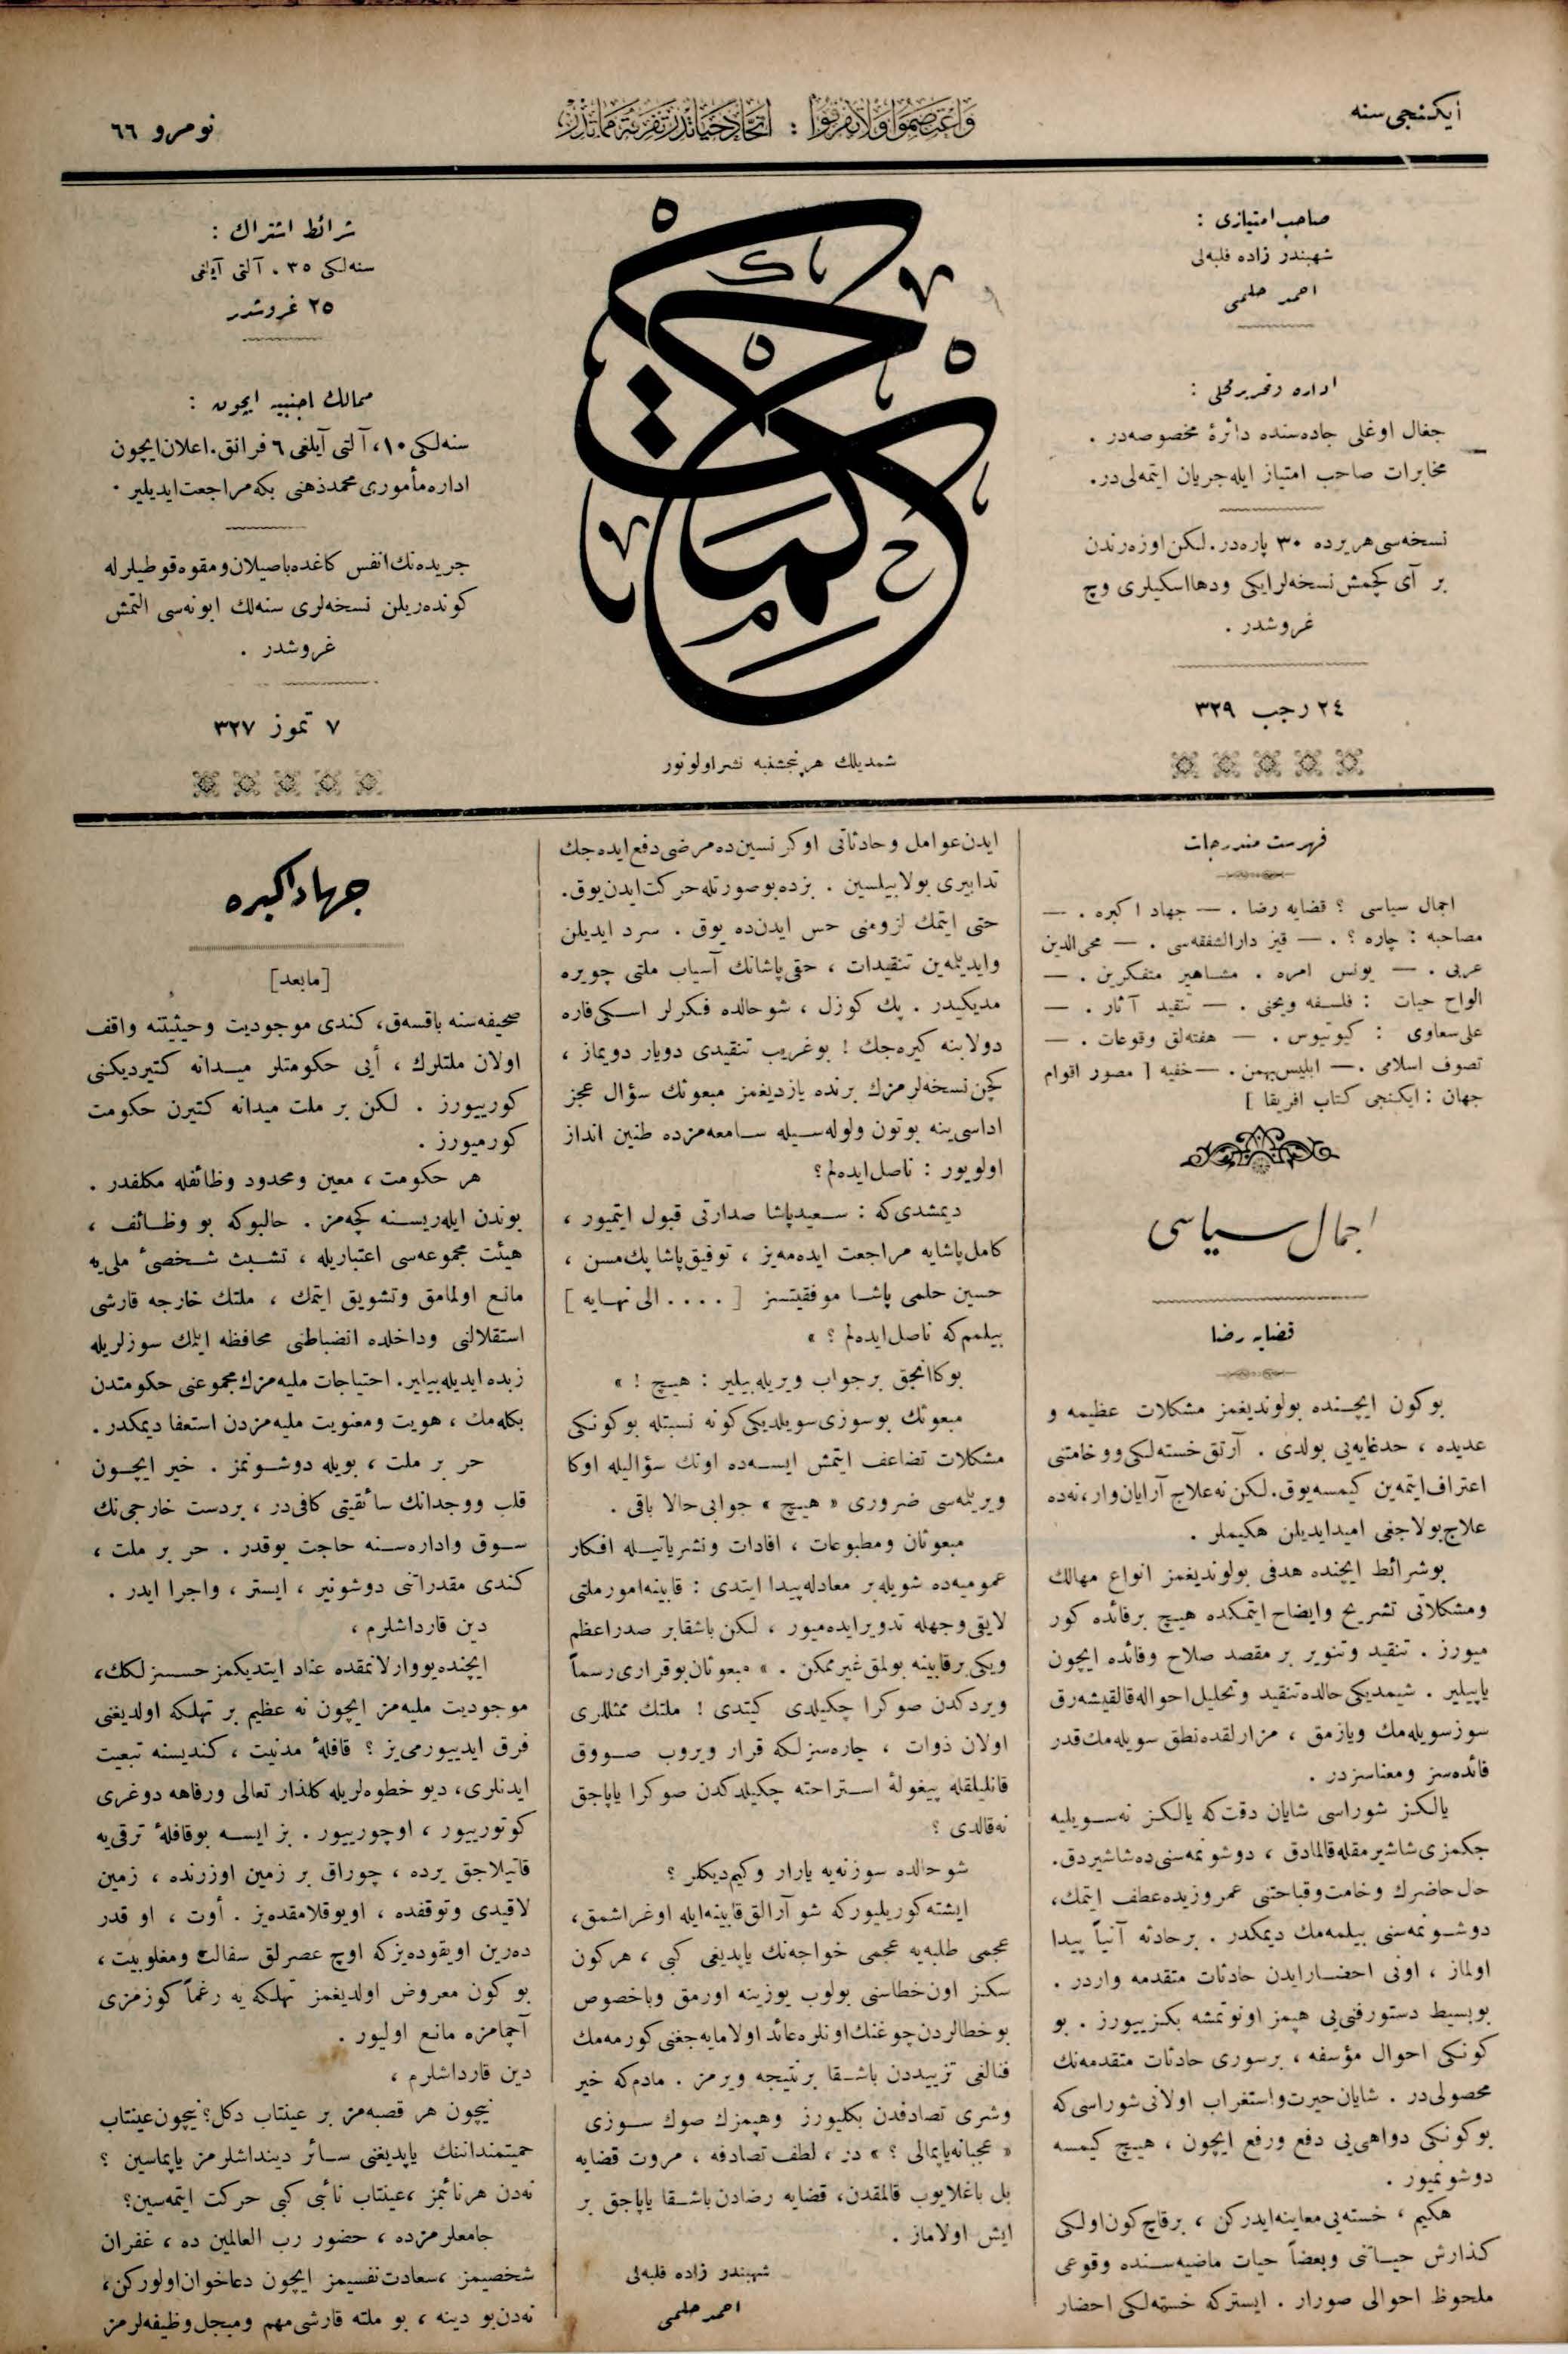 ایكنجی سنه
وَاعْتَصِمُوا وَلَا تَفَرَّقُوا : اتحاد حیاتدر تفرقه مماتدر
نومرو ٦٦
صاحب امتیازی :
شهبندر زاده فلبه‌لی
احمد حلمی
اداره و تحریر محلی :
جغال اوغلی جاده‌سنده دائرهٔ مخصوصه‌در .
مخابرات صاحب امتیاز ایله جریان ایتمه‌لی‌در .
نسخه‌سی هر یرده ٣٠ پاره‌در . لكن اوزه‌رندن
بر آی كچمش نسخه‌لر ایكی و دها اسكیلری وچ
غروشدر .
٢٤ رجب ٣٢٩
حكمت
شمدیلك هر پنجشنبه نشر اولونور
شرائط اشتراك :
سنه‌لكی ٣٥ ، آلتی آیلغی
٢٥ غروشدر
ممالك اجنبیه ایچون :
سنه‌لكی ١٠، آلتی آیلغی ٦ فرانق . اعلان ایچون
اداره مأموری محمد ذهنی بكه مراجعت ایدیلیر .
جریده‌نك انفس كاغده باصیلان و مقوه قوطیلرله
كونده‌ریلن نسخه‌لری سنه‌لك ابونه‌سی التمش
غروشدر .
٧ تموز ٣٢٧
فهرست مندرجات
اجمال سیاسی ؟ قضایه رضا . — جهاد اكبره . —
مصاحبه : چاره ؟ . — قیز دارالشفقه‌سی . — محی الدین
عربی . — یونس امره . مشاهیر متفكرین . —
الواح حیات : فلسفه ویحنی . — تنقید آثار . —
علی سعاوی : كیوتیوس . — هفته‌لق وقوعات . —
تصوف اسلامی . — ابلیس بهمن . — خفیه [ مصور اقوام
جهان : ایكنجی كتاب افریقا ]
اجمال سیاسی
قضایه رضا
بوكون ایچنده بولوندیغمز مشكلات عظیمه و
عدیده ، حدغایه‌یی بولدی . آرتق خسته‌لكی و وخامتنی
اعتراف ایتمه‌ین كیمسه یوق . لكن نه علاج آرایان وار ، نه‌ده
علاج بولاجغی امید ایدیلن هكیملر .
بوشرائط ایچنده هدفی بولوندیغمز انواع مهالك
ومشكلاتی تشریح وایضاح ایتمكده هیچ برفائده كور
میورز . تنقید وتنویر بر مقصد صلاح وفائده ایچون
یاپیلیر . شیمدیكی حالده تنقید وتحلیل احواله قالقیشه‌رق
سوزسویله‌مك ویازمق ، مزارلقده نطق سویله‌مك قدر
فائده‌سز ومعناسزدر .
یالكز شوراسی شایان دقت كه یالكز نه سویلیه
جكمزی شاشیرمقله قالمادق ، دوشونمه‌سنی ده شاشیردق .
حال حاضرك وخامت و قباحتنی عمر وزیده عطف ایتمك ،
دوشونمه‌سنی بیلمه‌مك دیمكدر . برحادثه آنیاً پیدا
اولماز ، اونی احضار ایدن حادثات متقدمه واردر .
بو بسیط دستور فنی‌یی هپمز اونوتمشه بكزییورز . بو
كونكی احوال مؤسفه ، برسوری حادثات متقدمه‌نك
محصولی‌در . شایان حیرت واستغراب اولانی شوراسی كه
بوكونكی دواهی‌یی دفع ورفع ایچون ، هیچ كیمسه
دوشونمیور .
هكیم ، خسته‌یی معاینه ایدركن ، برقاچ كون اولكی
كذارش حیاتنی وبعضاً حیات ماضیه‌سنده وقوعی
ملحوظ احوالی صورار . ایستركه خسته‌لكی احضار
ایدن عوامل وحادثاتی اوكرنسین ده مرضی دفع ایده‌جك
تدابیری بولابیلسین . بزده بو صورتله حركت ایدن یوق .
حتی ایتمك لزومنی حس ایدن ده یوق . سرد ایدیلن
وایدیلمه‌ین تنقیدات ، حقی پاشانك آسیاب ملتی چویره
مدیكیدر . پك كوزل ، شوحالده فكرلر اسكی قاره
دولابنه كیره‌جك ! بو غریب تنقیدی دویار دویماز ،
كچن نسخه‌لرمزك برنده یازدیغمز مبعوثك سؤال عجز
اداسی ینه بوتون ولوله‌سیله سامعه‌مزده طنین انداز
اولویور : ناصل ایده‌لم ؟
دیمشدی كه : سعید پاشا صدارتی قبول ایتمیور ،
كامل پاشایه مراجعت ایده‌مه‌یز ، توفیق پاشا پك مسن ،
حسین حلمی پاشا موفقیتسز [ . . . . الی نهایه ]
بیلمم كه ناصل ایده‌لم ؟ »
بوكا انجق بر جواب ویریله‌بیلیر : هیچ ! »
مبعوثك بو سوزی سویلدیكی كونه نسبتله بوكونكی
مشكلات تضاعف ایتمش ایسه‌ده اونك سؤالیله اوكا
ویریلمه‌سی ضروری « هیچ » جوابی حالا باقی .
مبعوثان ومطبوعات ، افادات ونشریاتیله افكار
عمومیه‌ده شویله بر معادله پیدا ایتدی : قابینه امور ملتی
لایقی وجهله تدویر ایده‌میور ، لكن باشقا بر صدراعظم
ویكی برقابینه بولمق غیرممكن . » مبعوثان بوقراری رسماً
ویردكدن صوكرا چكیلدی كیتدی ! ملتك ممثللری
اولان ذوات ، چاره‌سزلكه قرار ویروب صوؤق
قانلیلقله پیغولهٔ استراحته چكیلدكدن صوكرا یاپاجق
نه قالدی ؟
شو حالده سوزنه‌یه یارار وكیم دیكلر ؟
ایشته كوریلیوركه شو آرالق قابینه ایله اوغراشمق ،
عجمی طلبه‌یه عجمی خواجه‌نك یاپدیغی كبی ، هركون
سكز اون خطاسنی بولوب یوزینه اورمق وباخصوص
بو خطالردن چوغنك اونلره عائد اولامایه‌جغنی كورمه‌مك
فنالغی تزییددن باشقا برنتیجه ویرمز . مادم كه خیر
وشری تصادفدن بكلیورز وهپمزك صوك سوزی
« عجبا نه یاپمالی ؟ » در ، لطف تصادفه ، مروت قضایه
بل باغلایوب قالمقدن ، قضایه رضادن باشقا یاپاجق بر
ایش اولاماز .
شهبندر زاده فلبه‌لی
احمد حلمی
جهاد اكبره
[ مابعد ]
صحیفه‌سنه باقسه‌ق ، كندی موجودیت وحیثیتنه واقف
اولان ملتلرك ، أیی حكومتلر میدانه كتیردیكنی
كورییورز . لكن بر ملت میدانه كتیرن حكومت
كورمیورز .
هر حكومت ، معین ومحدود وظائفله مكلفدر .
بوندن ایله‌ریسنه كچه‌مز . حالبوكه بو وظائف ،
هیئت مجموعه‌سی اعتباریله ، تشبث شخصیٔ ملی‌یه
مانع اولمامق وتشویق ایتمك ، ملتك خارجه قارشی
استقلالنی وداخلده انضباطنی محافظه ایتمك سوزلریله
زبده ایدیله‌بیلیر . احتیاجات ملیه‌مزك مجموعنی حكومتدن
بكله‌مك ، هویت ومعنویت ملیه‌مزدن استعفا دیمكدر .
حر بر ملت ، بویله دوشونمز . خیر ایچون
قلب ووجدانك سائقیتی كافی‌در ، بردست خارجی‌نك
سوق واداره‌سنه حاجت یوقدر . حر بر ملت ،
كندی مقدراتنی دوشونیر ، ایستر ، واجرا ایدر .
دین قارداشلرم ،
ایچنده یووارلانمقده عناد ایتدیكمز حسسزلكك ،
موجودیت ملیه‌مز ایچون نه عظیم بر تهلكه اولدیغنی
فرق ایدییورمی‌یز ؟ قافلهٔ مدنیت ، كندیسنه تبعیت
ایدنلری ، دیو خطوه‌لریله كلذار تعالی ورفاهه دوغری
كوتورییور ، اوچورییور . بز ایسه بوقافلهٔ ترقی‌یه
قاتیلاجق یرده ، چوراق بر زمین اوزرنده ، زمین
لاقیدی وتوقفده ، اویوقلامقده‌یز . أوت ، او قدر
ده‌رین اویقوده‌یزكه اوچ عصرلق سفالت ومغلوبیت ،
بوكون معروض اولدیغمز تهلكه‌یه رغماً كوزمزی
آچمامزه مانع اولیور .
دین قارداشلرم ،
نیچون هر قصبه‌مز بر عینتاب دكل ؟ نیچون عینتاب
حمیتمنداننك یاپدیغنی سائر دینداشلرمز یاپماسین ؟
نه‌دن هر نائبمز ، عینتاب نائبی كبی حركت ایتمه‌سین ؟
جامعلرمزده ، حضور رب العالمین ده ، غفران
شخصیمز ، سعادت نفسیمز ایچون دعاخوان اولوركن ،
نه‌دن بو دینه ، بو ملته قارشی مهم ومبجل وظیفه‌لرمز